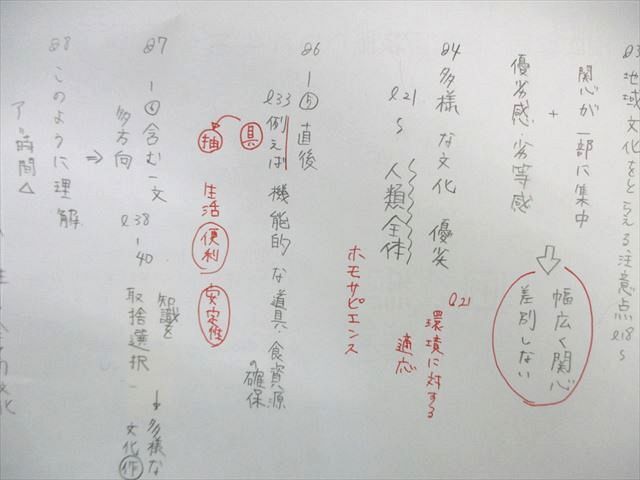 Q3 地域文化をとらえる注意点 l18~
関心が一部に集中
+
優劣感・劣等感
幅広く関心
差別しない
Q4 多様な文化 優劣
l21 ~ 人類全体
l21 環境に対する
適応
ホモサピエンス
Q6 ー⑤ 直後
l33 例えば 機能的な道具 食資源
の確保
具
抽 生活 便利 安定性
Q7 ー④含む一文
多方向 l38-40 知識を
取捨選択 → 多様な
文化作
⇒
Q8 このように理解
ア:時間△